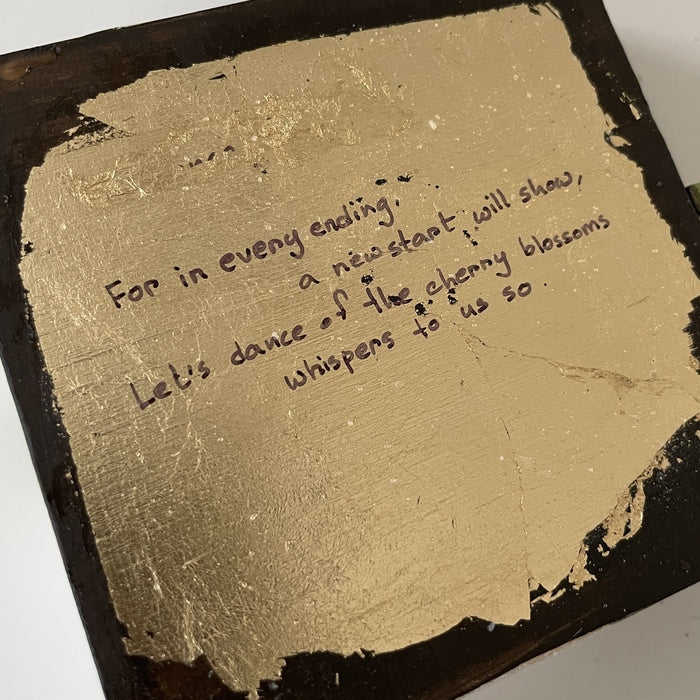 For in every ending,
a new start will show,
Let's dance of the cherry blossoms
whispers to us so.